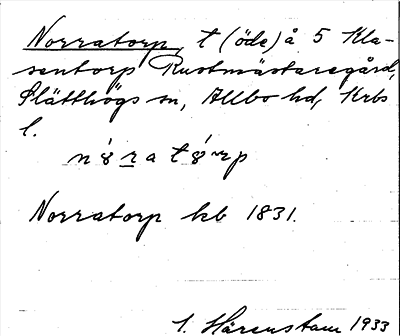 Norratorp, t (öde) å 5 Kla-
sentorp Rustmästaregård,
Slätthögs sn, Allbo hd, Krbs
l.
nȯ́r̲atȯ́rp
Norratorp kb 1831.
I. Hårenstam 1933